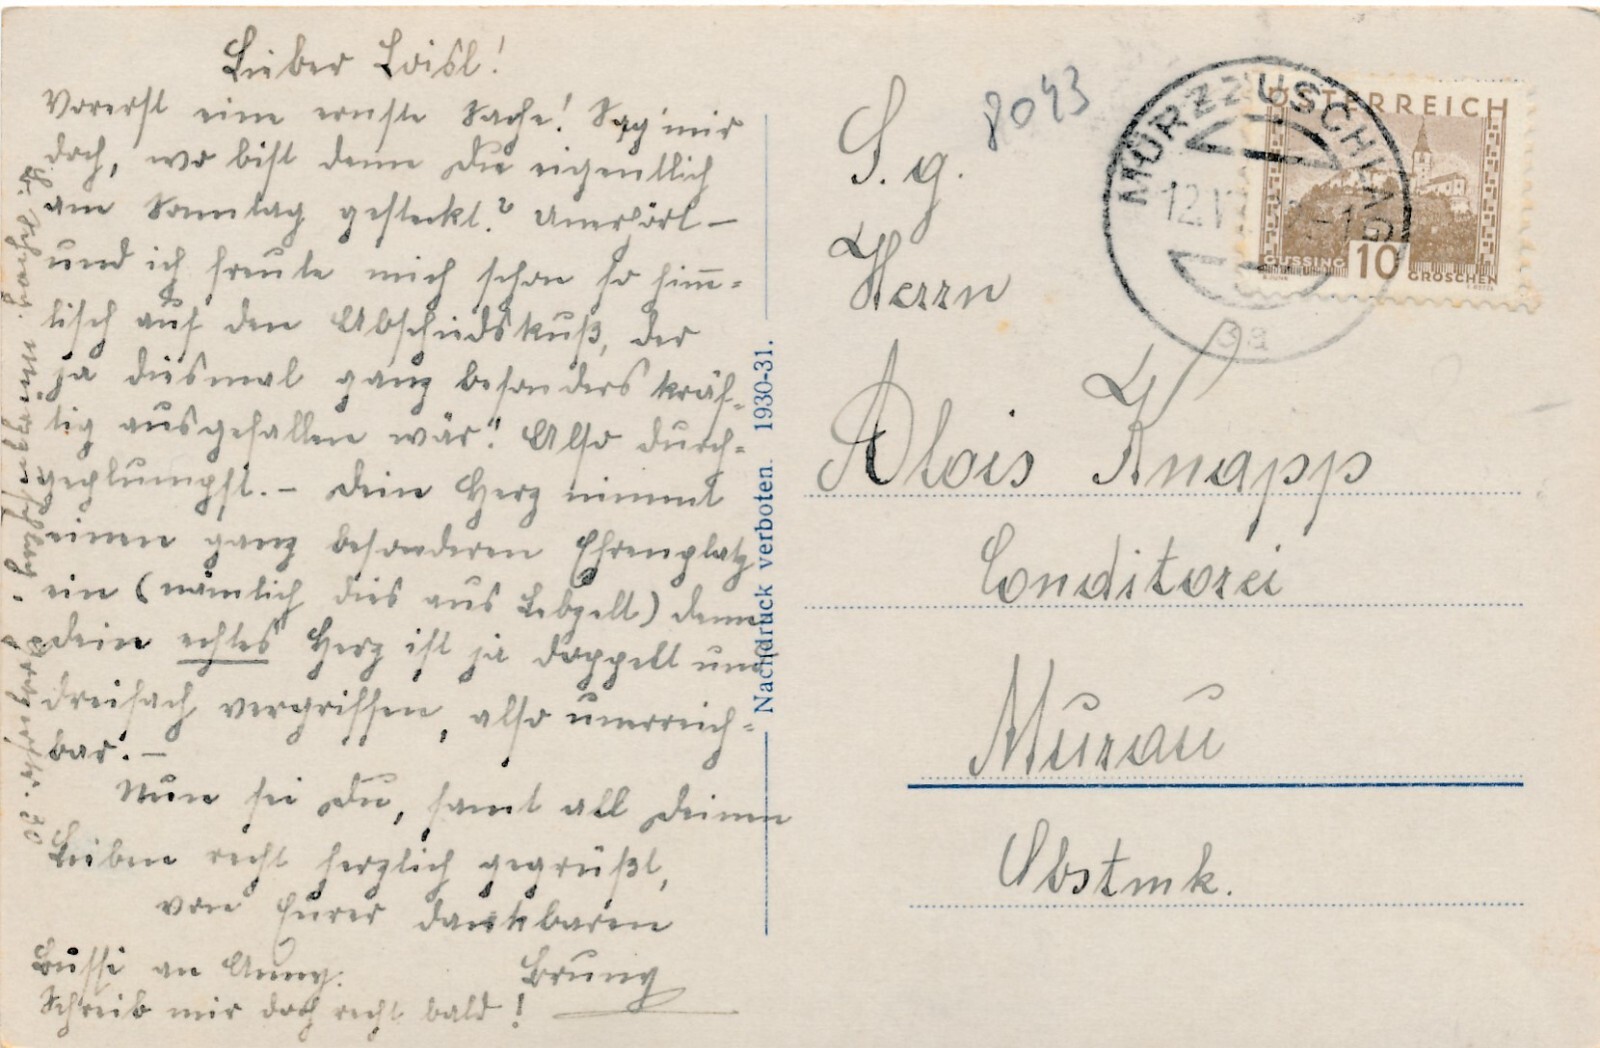 Lieber Loisl!
Vorerst eine ernste Sache! Sag' mir
doch, wo bist denn Du eigentlich
am Sonntag gesteckt? Unerhört –
und ich freute mich schon so himm=
lisch auf den Abschiedskuß, der
ja diesmal ganz besonders kräf=
tig ausgefallen wär! Also durch=
geplumpst. – Dein Herz nimmt
einen ganz besonderen Ehrenplatz
ein (nämlich dies aus Lebzelt) denn
Dein echtes Herz ist ja doppelt und
dreifach vergriffen, also unerreich=
bar. –
Nun sei Du, samt all Deinen
Lieben recht herzlich gegrüßt,
von Eurer dankbaren
Bussi an Anny.
Bruny
Schreib mir doch recht bald!
Mürzzuschlag
30
Nachdruck verboten. 1930-31.
8043
S. g.
Herrn
Alois Knapp
Conditorei
Murau
Obstmk.
MÜRZZUSCHLAG
12.V
3a
ÖSTERREICH
GÜSSING 10 GROSCHEN